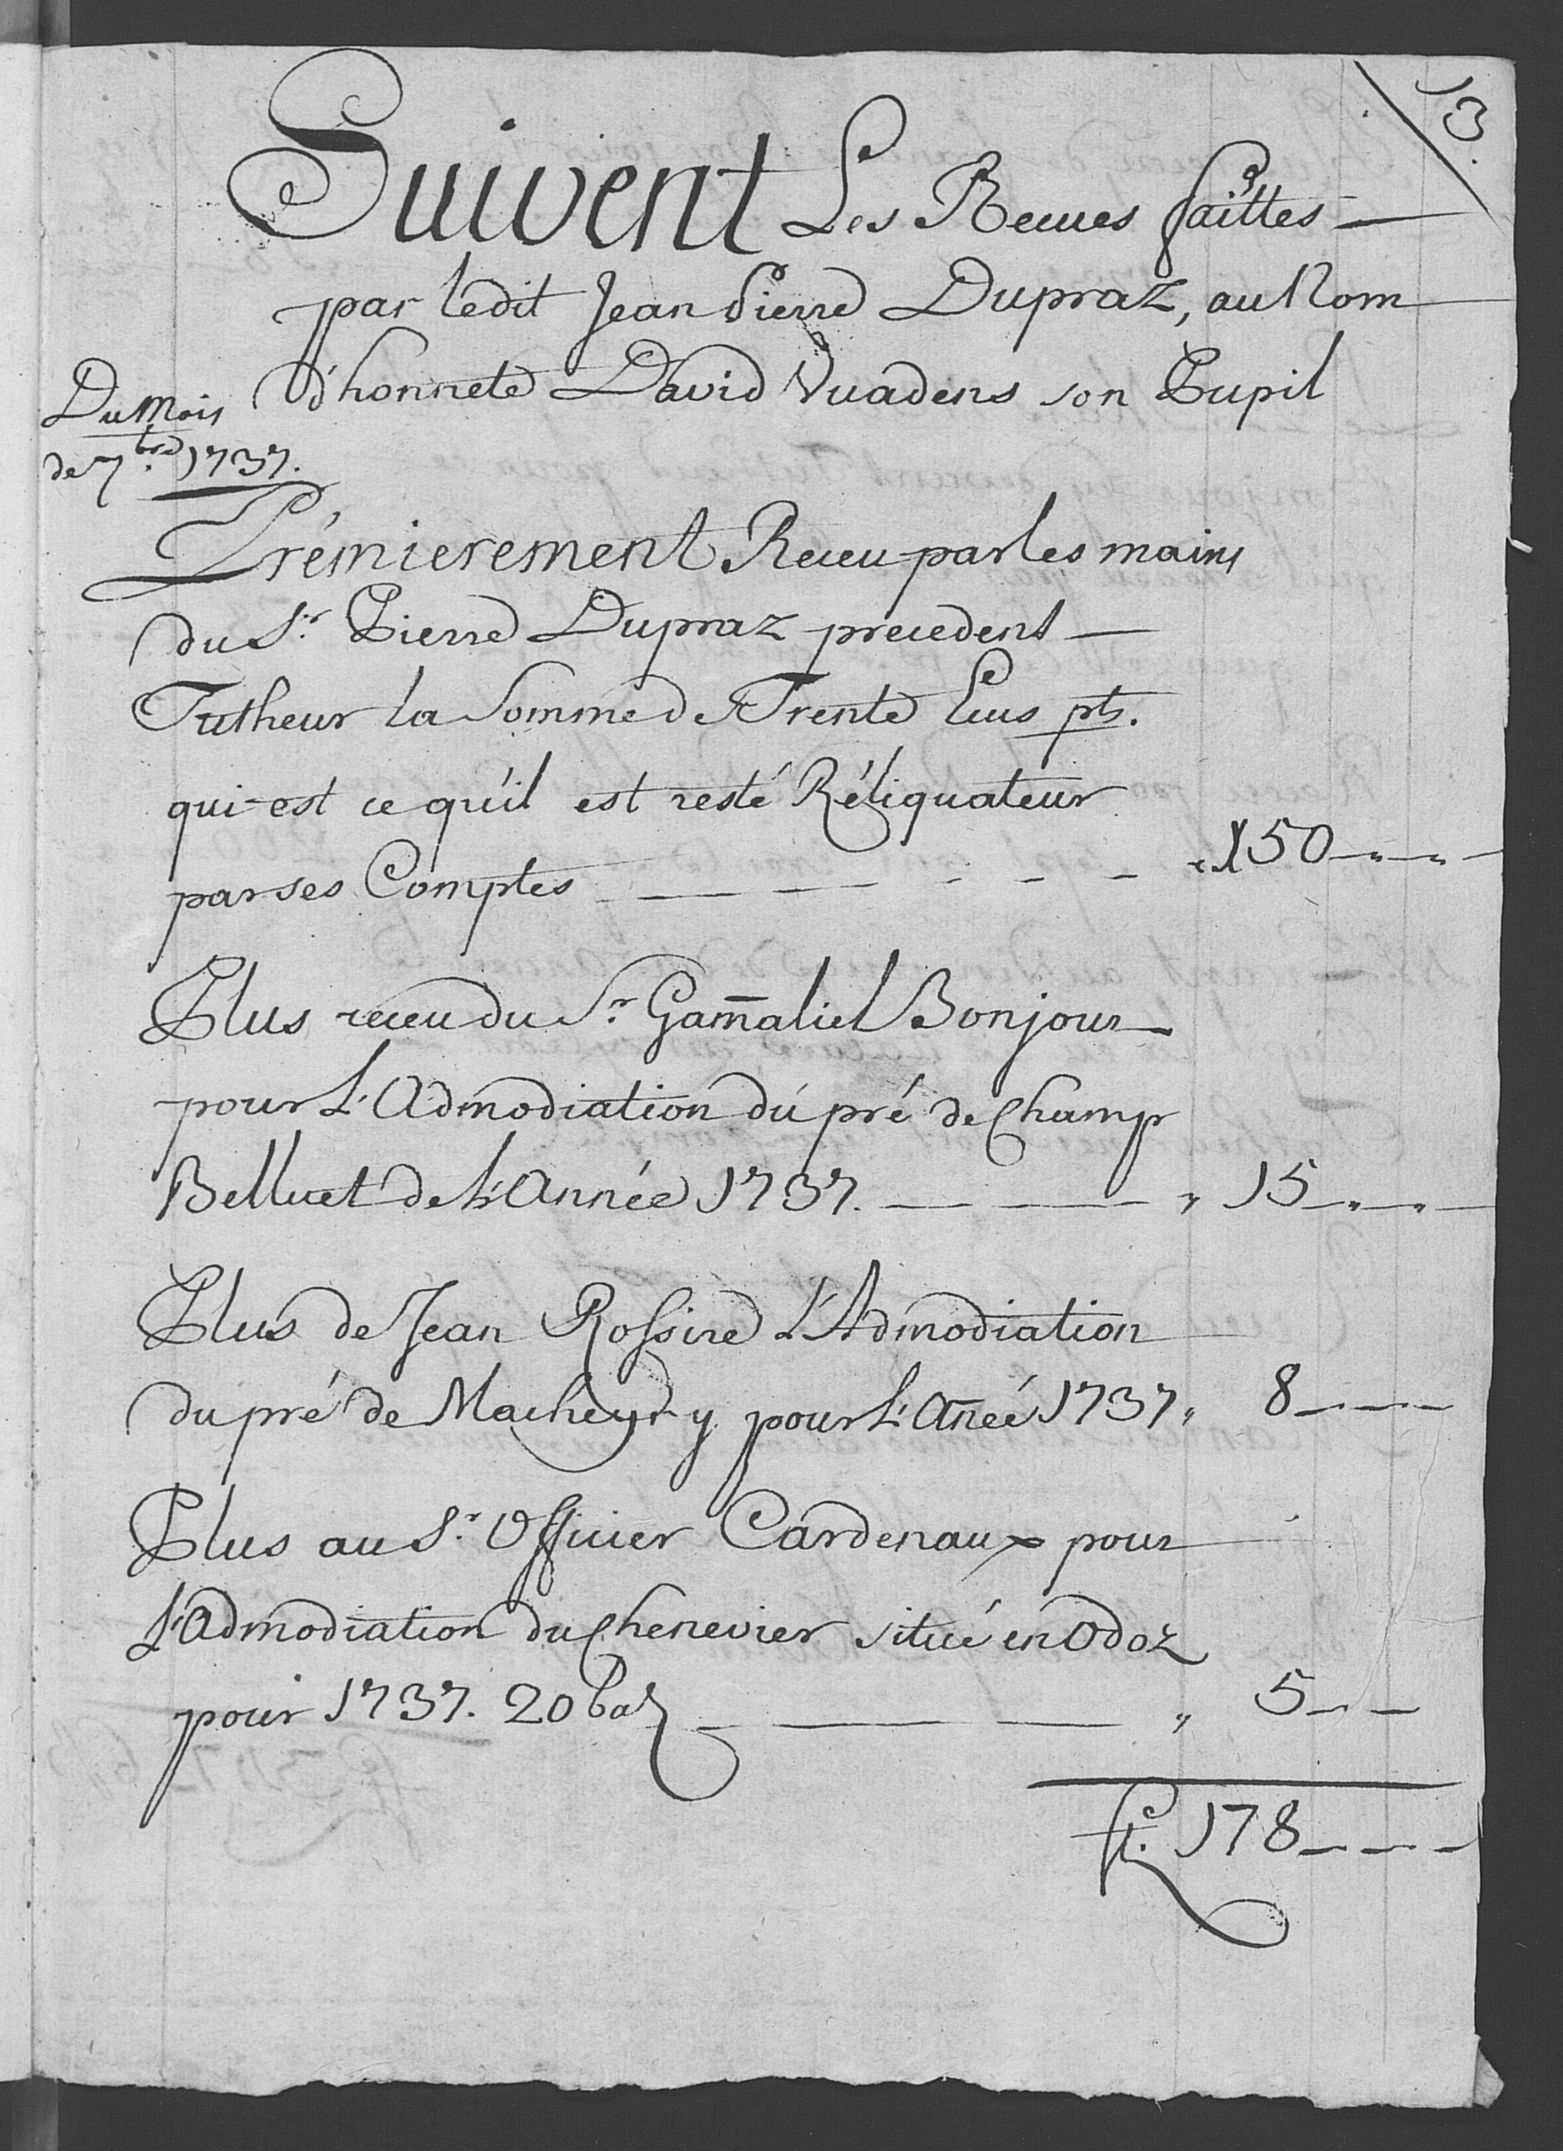 13.
Suivent Les Recues faittes
par ledit Jean Pierre Dupraz, au Nom
d'honnete David Vuadens son Pupil
Du Mois
de 7.bre 1737.
Prémierement Receu par les mains
du S.r Pierre Dupraz precedent
Tutheur la Somme de Trente Ecus pts.
qui est ce qu'il est resté Réliquateur
par ses Comptes - - - - - - " 150 - " - " -
Plus receu du S.r Gam̄aliel Bonjour
pour L'Admodiation du pré de Champ
Belluet de L'Année 1737. - - " 15 - " - " -
Plus de Jean Rossire L'Admodiation
du pré de Macheyry pour L'An̄eé 1737 " 8 - - -
Plus au S.r Officier Cardenaux pour
L'Admodiation du Chenevier situé en Odoz
pour 1737. 20 baz - - - " 5 - - -
fl. 178 - - -